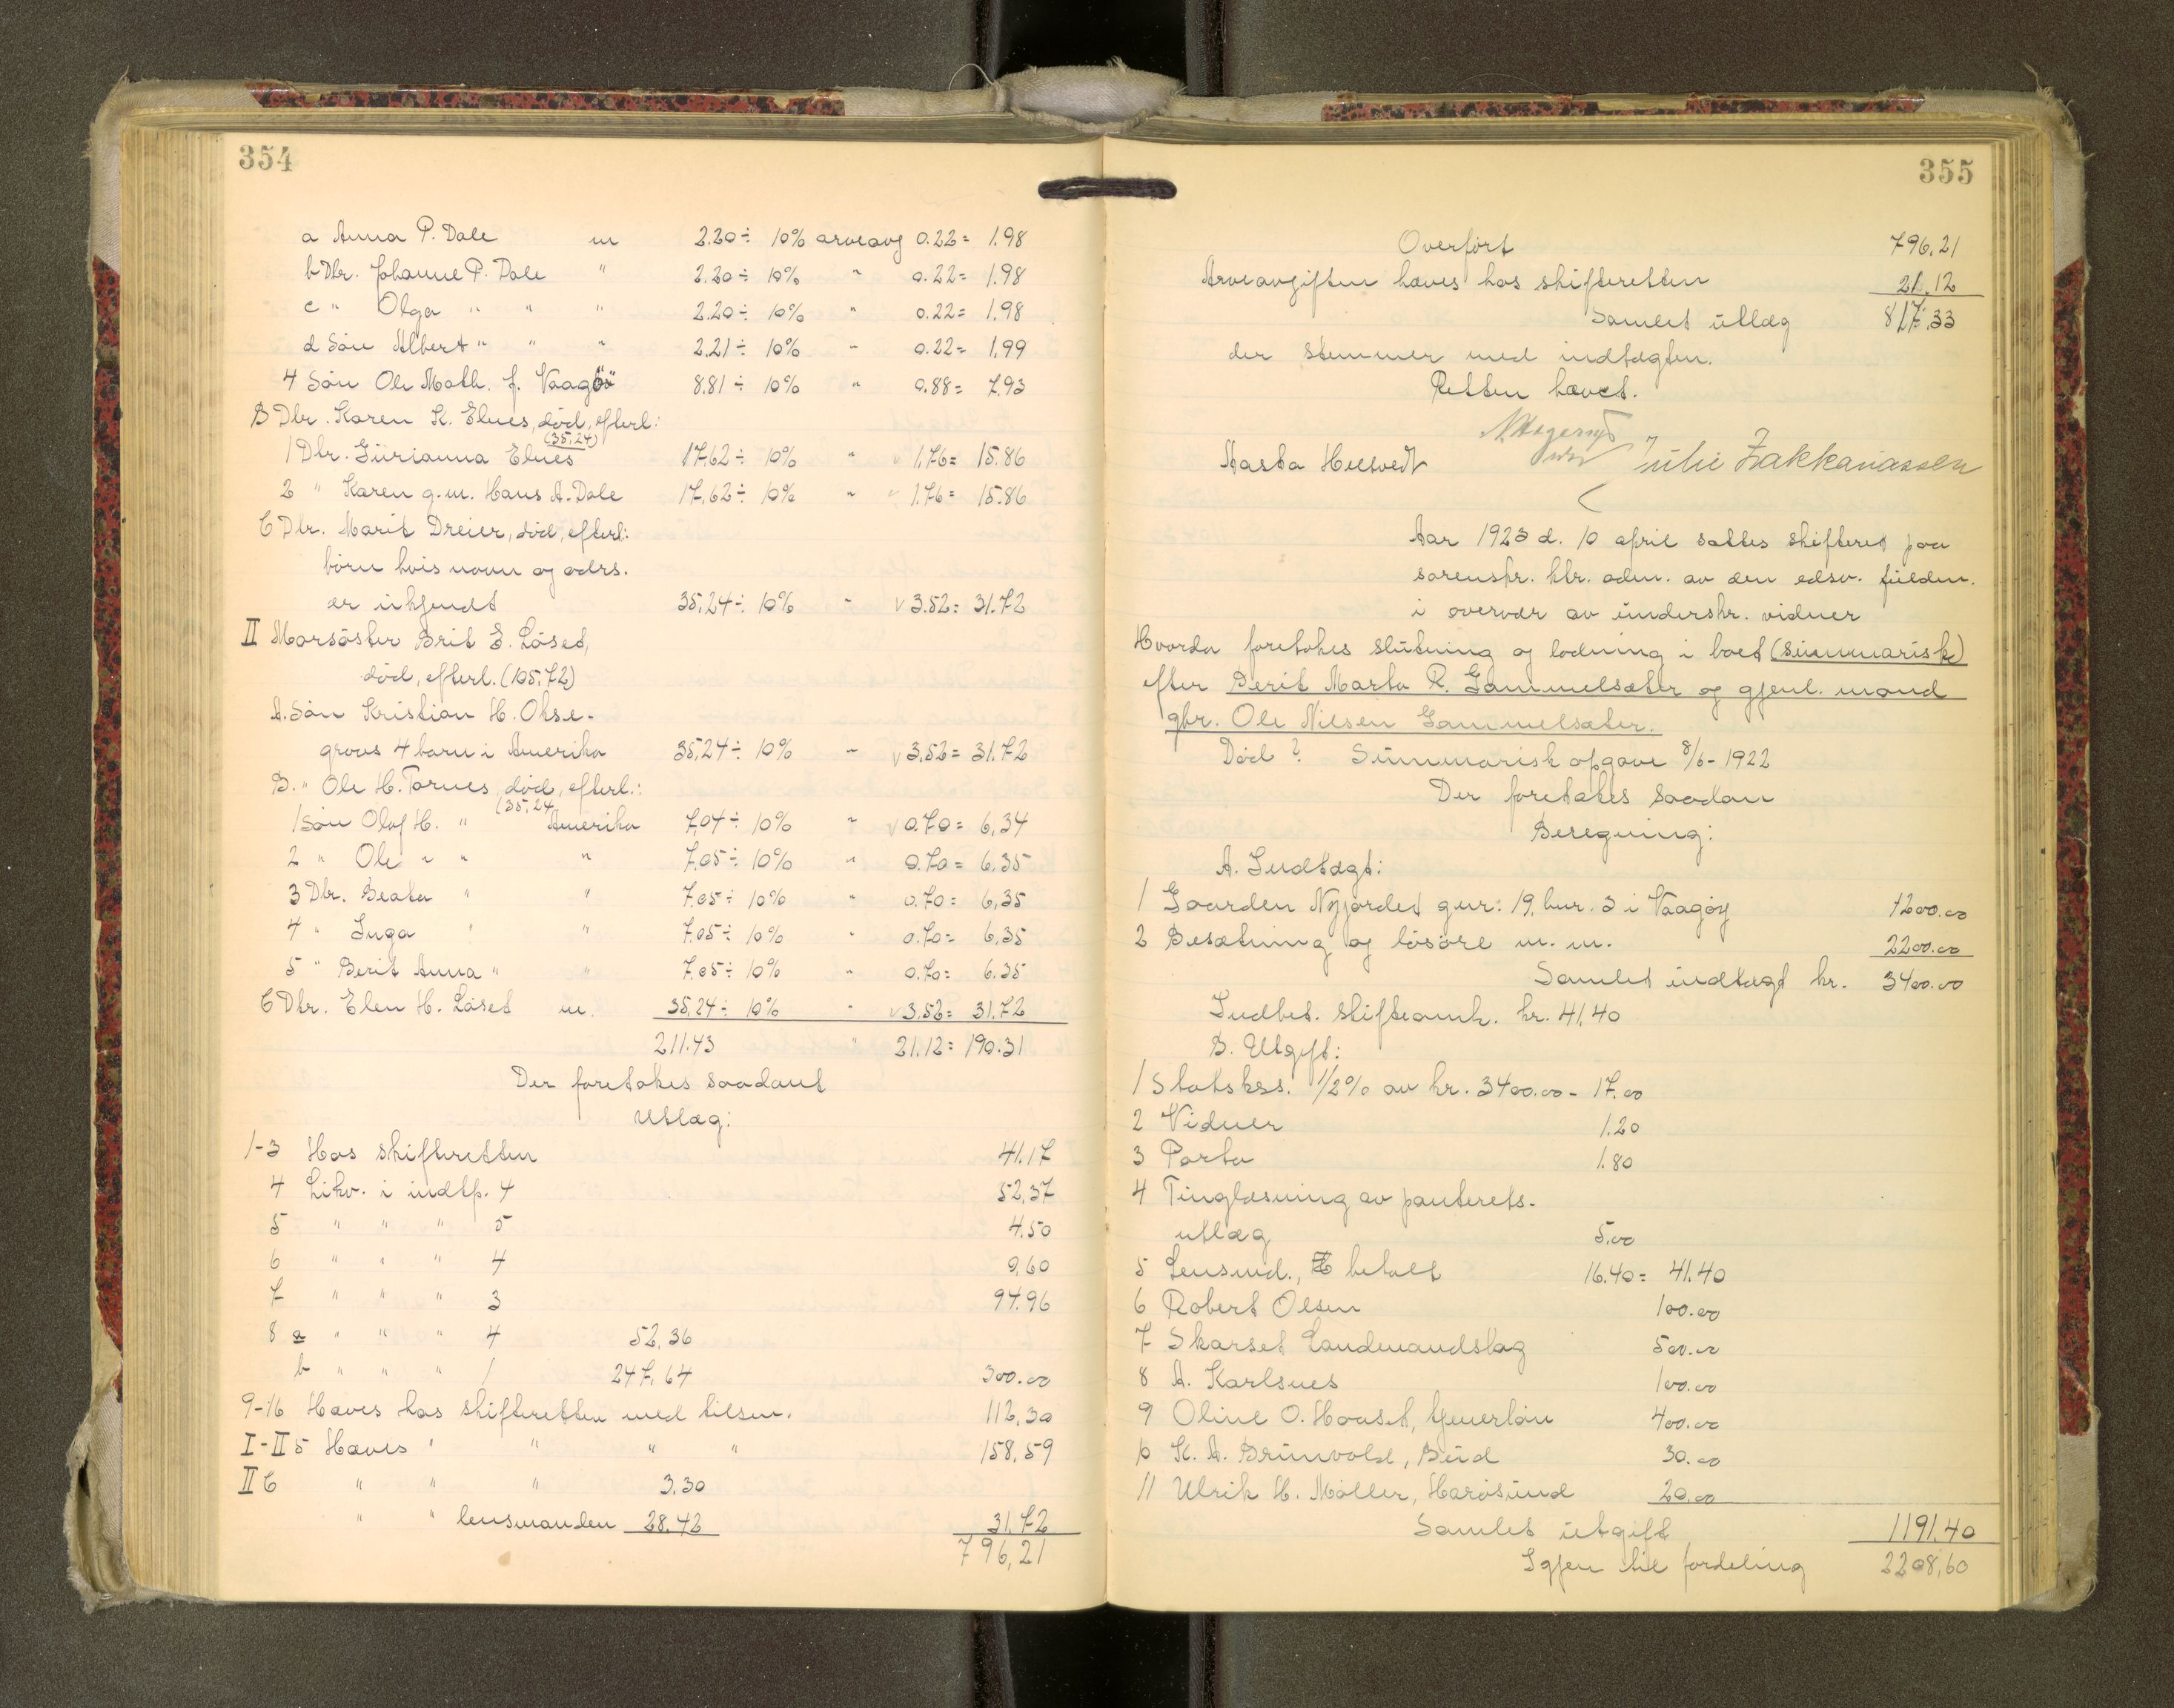 354
a Anna P. Dale m 2.20 ÷ 10% arveavg 0.22 = 1.98
b Dtr. Johanne P. Dale " 2.20 ÷ 10% " 0.22 = 1.98
c " Olga " " " 2.20 ÷ 10% " 0.22 = 1.98
d Sön Albert " " " 2.21 ÷ 10% " 0.22 = 1.99
4 Sön Ole Math. J. Vaagö" 8.81 ÷ 10% " 0.88 = 7.93
B Dtr. Karen K. Elnes, död, efterl:
(35,24)
1 Dtr. Gürianna Elnes 17,62 ÷ 10% " 1,76 = 15.86
2 " Karen g.m. Hans A. Dale 17,62 ÷ 10% " 1.76 = 15.86
C Dtr. Marit Dreier, död, efterl:
börn hvis navn og adrs.
er ükjendt 35,24 ÷ 10% " 3.52 = 31.72
II Morsöster Brit E. Löset,
död, efterl. (105,72)
A. Sön Kristian H. Ohse-
graas 4 barn i Amerika 35,24 ÷ 10% " 3,52 = 31.72
B. " Ole H. Tornes, död, efterl.:
(35,24
1 Sön Olaf H. " Amerika 7,04 ÷ 10% " 0.70 = 6,34
2 " Ole " " " 7,05 ÷ 10% " 0.70 = 6.35
3 Dtr. Beata " " 7.05 ÷ 10% " 0.70 = 6,35
4 " Inga " " 7.05 ÷ 10% " 0.70 = 6,35
5 " Berit Anna " " 7.05 ÷ 10% " 0.70 = 6.35
C Dtr. Elen H. Löset m. 35,24 ÷ 10% " 3,52 = 31.72
211.43 " 21.12 = 190.31
Der foretakes saadant
Utlæg:
1-3 Hos skifteretten 41.17
4 Likv. i indtp. 4 52,37
5 " " " 5 4.50
6 " " " 4 0,60
7 " " " 3 94.96
8 a " " " 4 52,36
b " " " 1 247,64 300.00
9-16 Haves hos skifteretten med tilsm. 112,30
I-II 5 Haves " " " " 158,59
II C " " " 3.30
" " lensmanden 28.42 31.72
796,21
355
Overfört 796,21
Arveavgiften haves hos skifteretten 21.12
Samlet utlæg 817,33
der stemmer med indtægten.
Retten hævet.
Aasta Hustvedt Julie Zakkariassen
Aar 1923 d. 10 april sattes skifteret paa
sorenskr. ktr. adm. av den edsv. füldm.
i overvær av ünderskr. vidner
Hvorda foretakes slütning og lodning i boet (sümmarisk)
efter Berit Marta R. Gammelsæter og gjenl. mand
gbr. Ole Nilsen Gammelsæter.
Död ? Sümmarisk opgave 8/6-1922
Der foretakes saadan
Beregning:
A. Indtægt:
1 Gaarden Nyjordet gnr: 19, bnr. 3 i Vaagöy 1200.00
2 Besætning og lösöre m. m. 2200.00
Samlet indtægt kr. 3400.00
Indbet. skifteomk. kr. 41,40
B. Utgift:
1 Statskss. 1/2% av kr. 3400.00 - 17.00
2 Vidner 1.20
3 Porto 1.80
4 Tinglæsning av panterets-
utlæg 5.00
5 Lensmd., betalt 16.40 = 41.40
6 Robert Olsen 100.00
7 Skarset Landmandslag 500.00
8 A. Karlsnes 100.00
9 Oline O. Haaset, tjenerlön 400.00
10 K. A. Brünvold, Büd 30.00
11 Ulrik H. Möller, Harösünd 20.00
Samlet ütgift 1191.40
Igjen til fordeling 2208,60